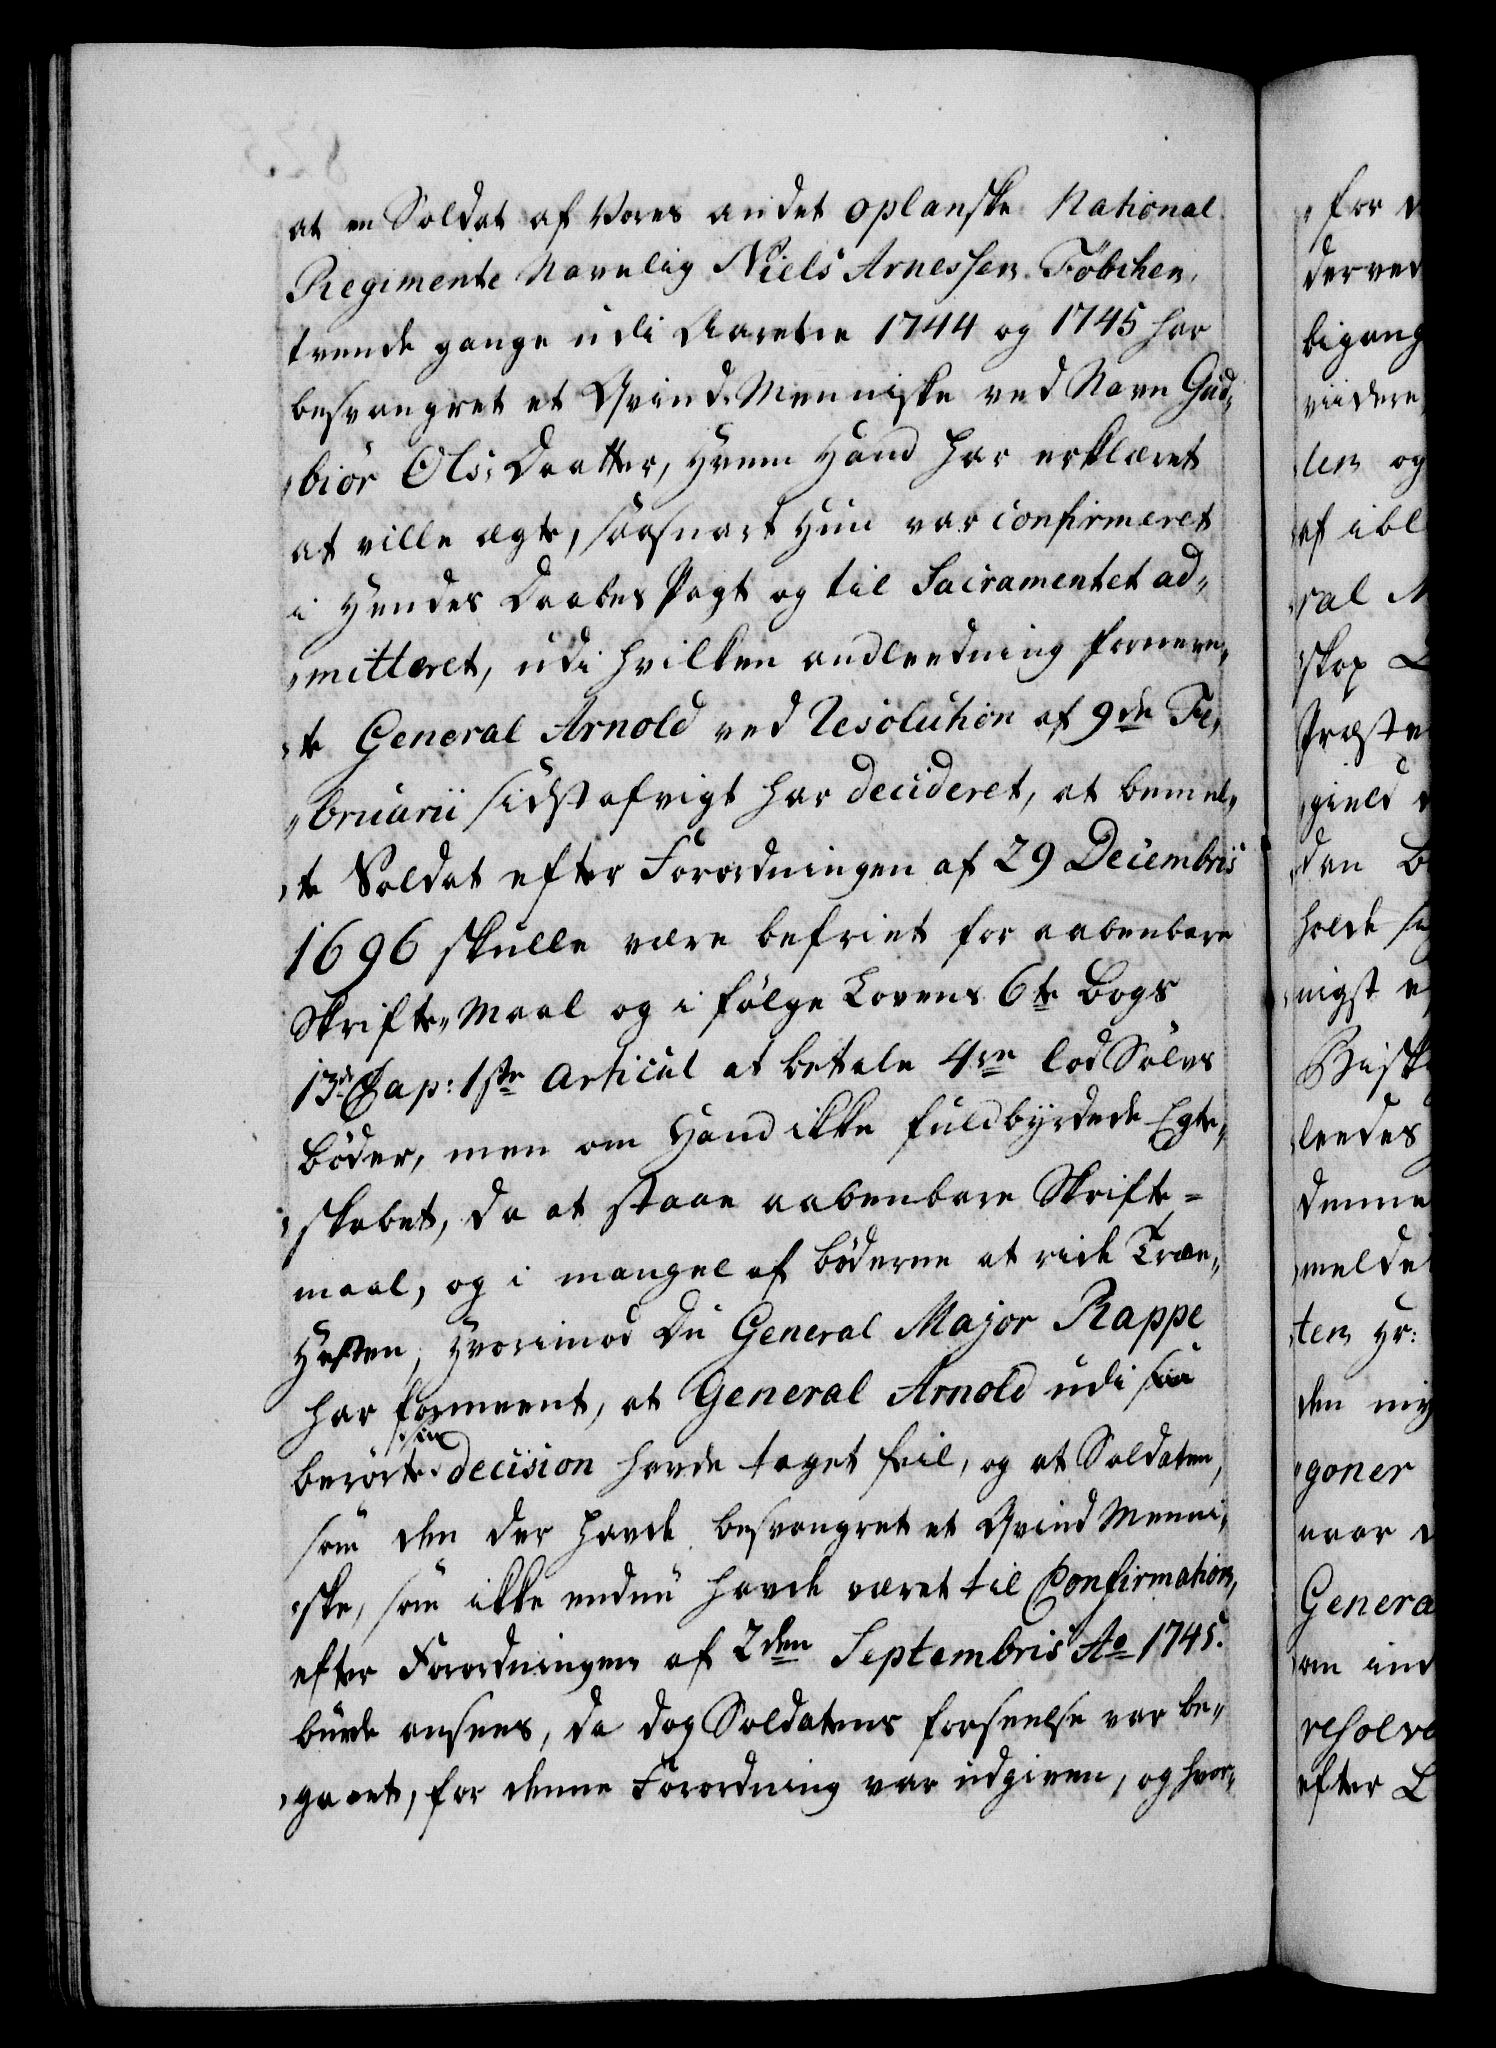 at en Soldat af Vores andet oplanske National
Regimente Navnlig Niels ArnessenFöbchen,
tvende gange udi Aarene 1744 og 1745 har
besvangret et Qvind-Menniske ved Navn Gud„
„biör Ols: Daatter, hvem Hand har erklæret
at ville ægte, saasnart Hun var confirmeret
i Hendes Daabes Pagt og til Sacramentet ad„
„mitteret, udi hvilken andleedning formeen„
„te General Arnold ved Resolution af 9de Fe„
„bruarii sidstafvigt har decideret, at bemel„
„te Soldat efter Forordningen af 29 Decembris
1696 skulle være befriet for aabenbare
Skrifte„Maal og i fölge Lovens 6te Bogs
13de Cap: 1ste Articul at betale 4re lod Sölvs
Böder, men om Hand ikke fuldbyrdede Egte„
„skabet, da at staae aabenbare Skrifte=
maal, og i mangel af böderne at ride Træe„
Hesten, Hvorimod Du General Major Rappe
har formeent, at General Arnold udi saa
berörte sin decision havde taget feil, og at Soldaten,
som den der havde besvangret et Qvind Menni„
„ske, som ikke endnu havde været til Confirmation,
efter Forordningen af 2den Septembris Ao 1745.
burde ansees, da dog Soldatens forseelse var be„
„gaaet, for denne Forordning var udgiven, og hvor„
„for
derved
bigang
viidere
len og
af ibl
ral M
skop
Præste
gield
dan B
holde
nigst
Bisk
leedes
denne
melde
ten Hr:
den
goner
naar
Genera
an ind
resolve
efter L